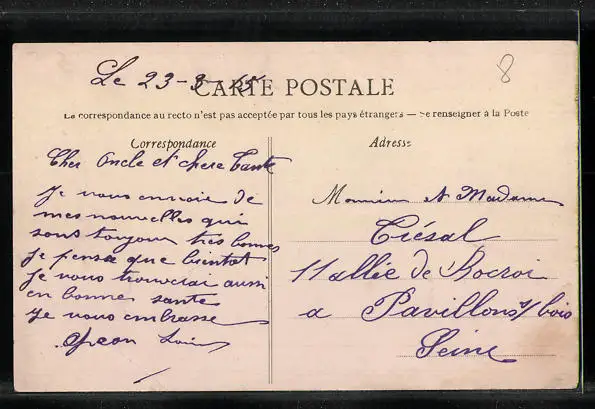 Le 23-3-15
CARTE POSTALE
La correspondance au recto n'est pas acceptée par tous les pays étrangers — Se renseigner à la Poste
8
Correspondance
Cher Oncle et chere Tante
Je vous envoie de
mes nouvelles qui
sont toujours très bonnes
je pense que bientot
je vous trouverai aussi
en bonne santé
Je vous embrasse
Adresse
Monsieur et Madame
Ciésal
11 allée de Rocroi
a Pavillons s/ bois
Seine